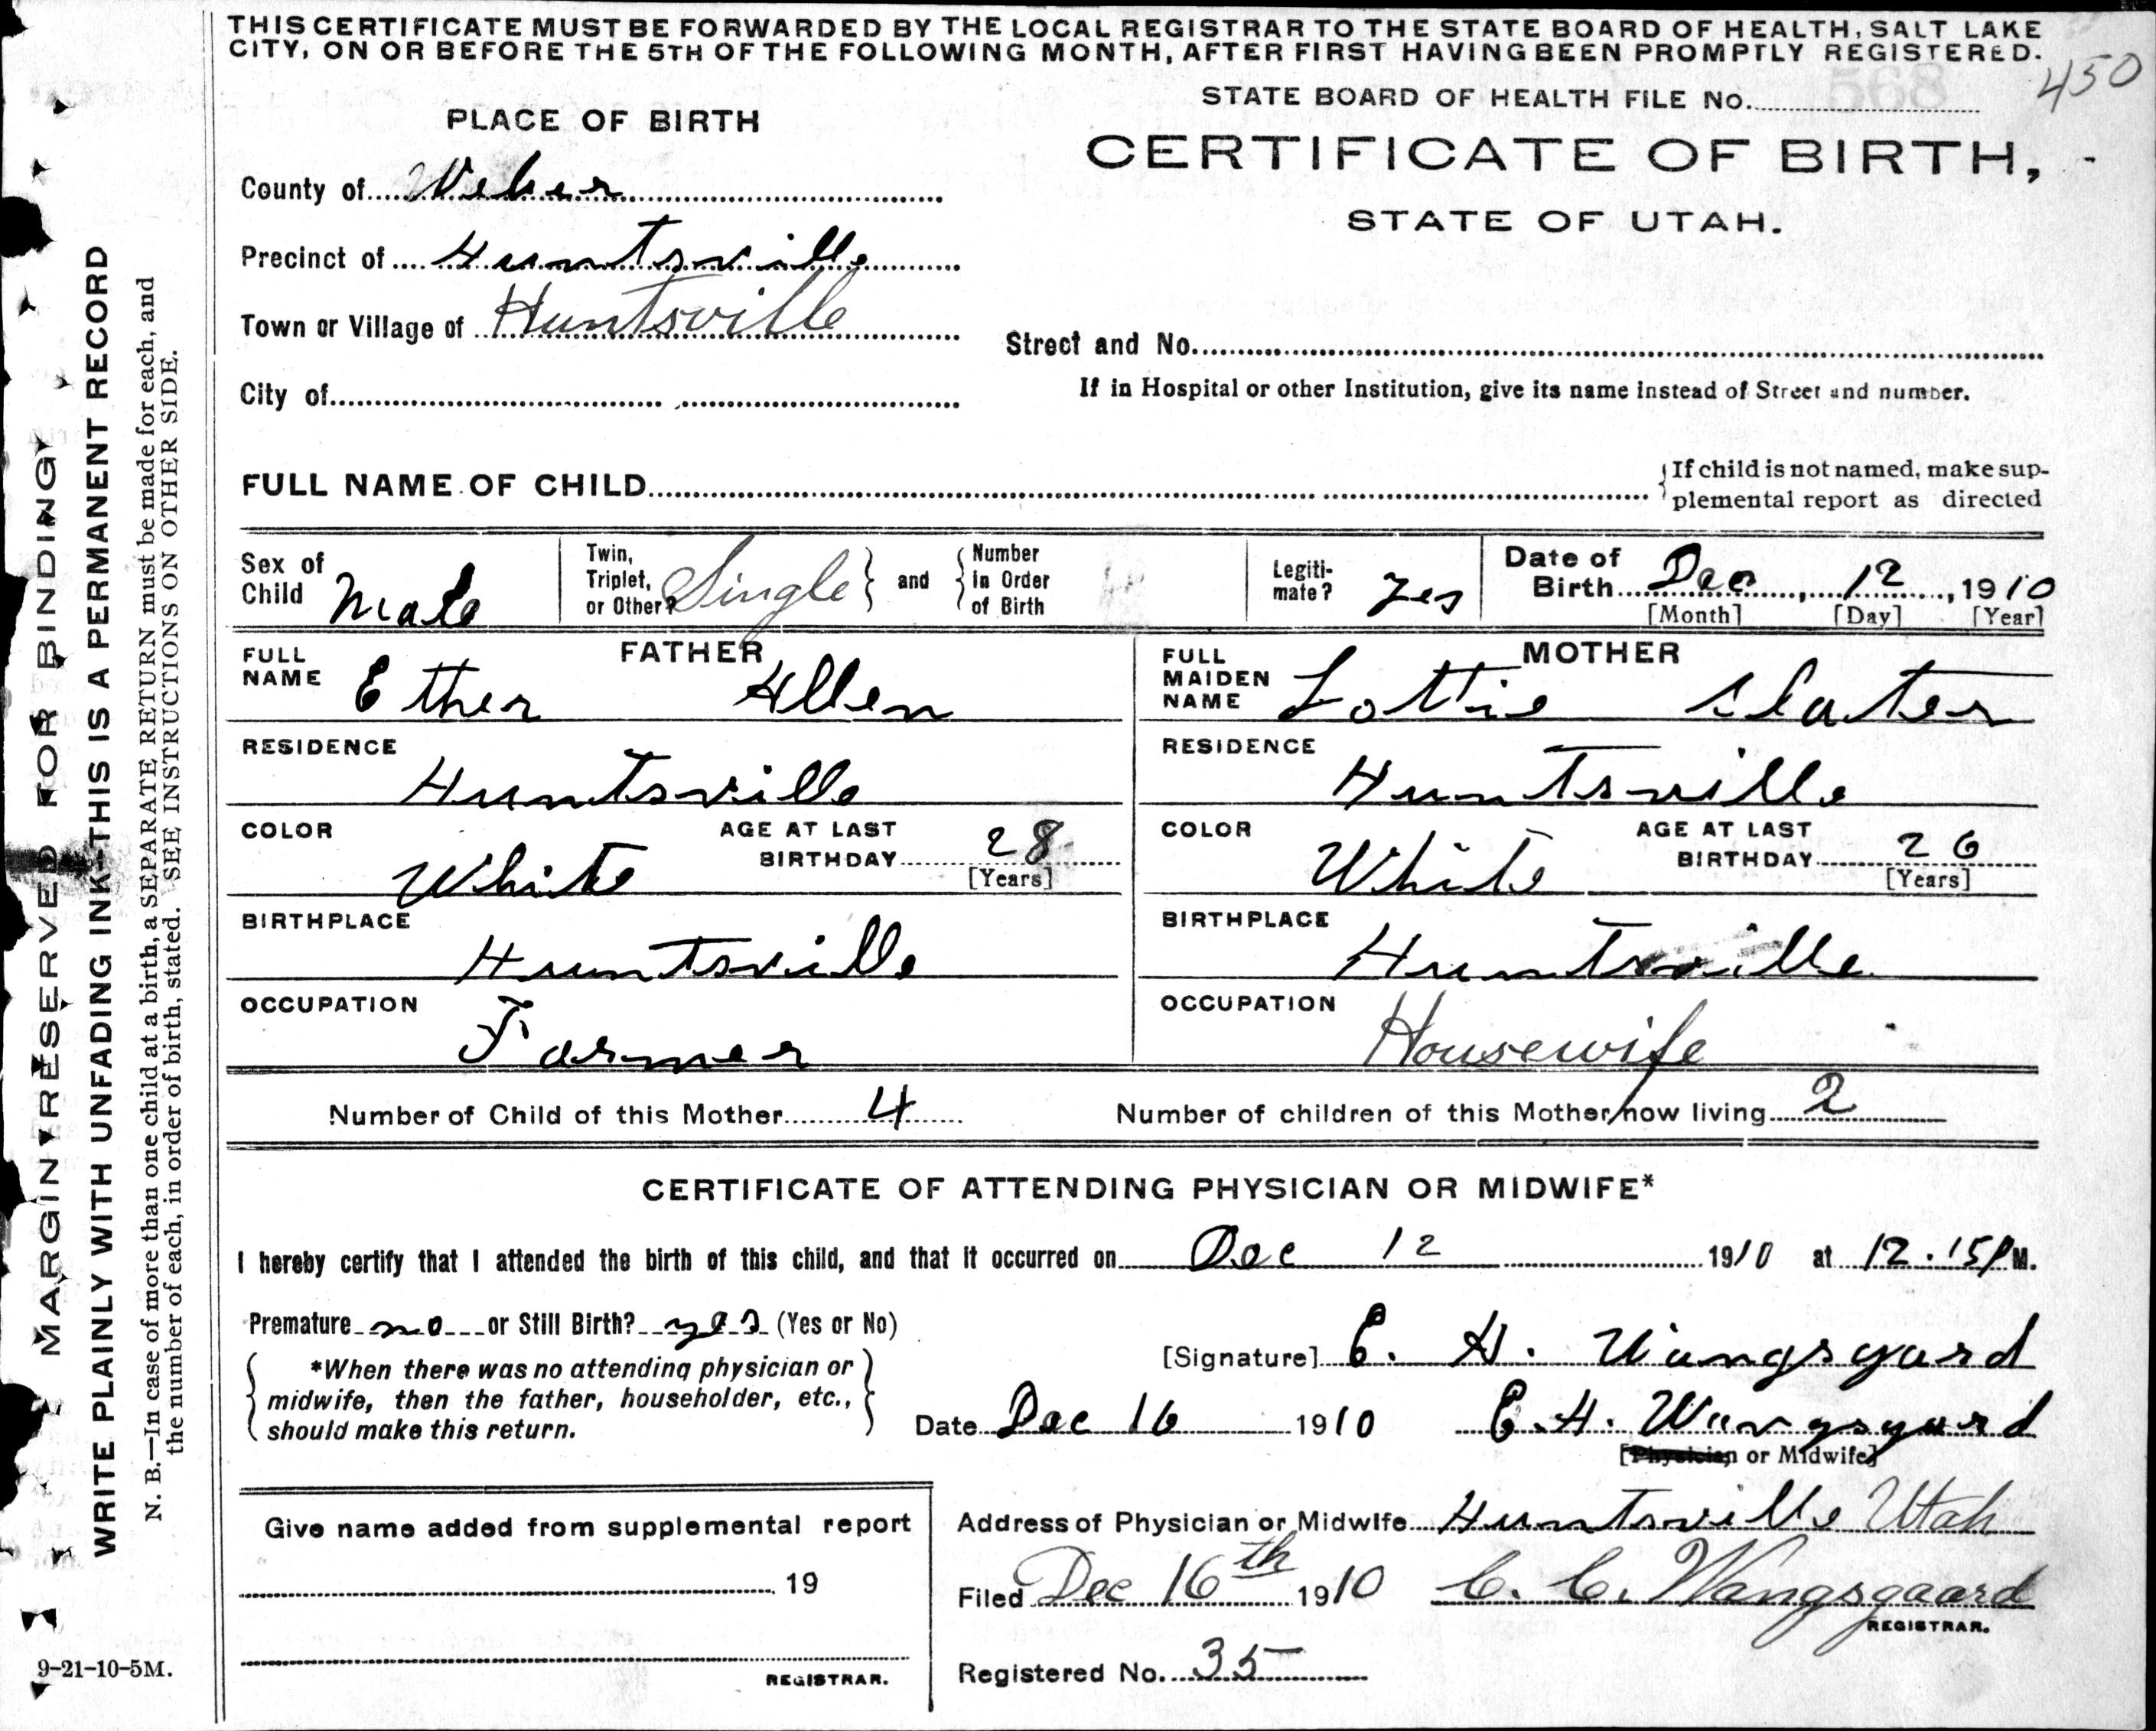 THIS CERTIFICATE MUST BE FORWARDED BY THE LOCAL REGISTRAR TO THE STATE BOARD OF HEALTH, SALT LAKE
CITY, ON OR BEFORE THE 5TH OF THE FOLLOWING MONTH, AFTER FIRST HAVING BEEN PROMPTLY REGISTERED.
450
STATE BOARD OF HEALTH FILE No. 568
PLACE OF BIRTH
CERTIFICATE OF BIRTH,
STATE OF UTAH.
County of Weber
Precinct of Huntsville
Town or Village of Huntsville
Street and No.
City of
If in Hospital or other Institution, give its name instead of Street and number.
FULL NAME OF CHILD
If child is not named, make sup-
plemental report as directed
Sex of Child Male
Twin, Triplet, or Other? Single and Number in Order of Birth
Legiti-mate? Yes
Date of Birth Dec, 12, 1910
[Month] [Day] [Year]
FATHER
FULL NAME Ether Allen
RESIDENCE Huntsville
COLOR White AGE AT LAST BIRTHDAY 28 [Years]
BIRTHPLACE Huntsville
OCCUPATION Farmer
MOTHER
FULL MAIDEN NAME Lottie Slater
RESIDENCE Huntsville
COLOR White AGE AT LAST BIRTHDAY 26 [Years]
BIRTHPLACE Huntsville
OCCUPATION Housewife
Number of Child of this Mother 4 Number of children of this Mother now living 2
CERTIFICATE OF ATTENDING PHYSICIAN OR MIDWIFE*
I hereby certify that I attended the birth of this child, and that it occurred on Dec 12 1910 at 12.15 P M.
Premature no or Still Birth? yes (Yes or No)
*When there was no attending physician or
midwife, then the father, householder, etc.,
should make this return.
[Signature] E. H. Wangsgard
Date Dec 16 1910 E. H. Wangsgard
[Physician or Midwife]
Give name added from supplemental report
19
REGISTRAR.
Address of Physician or Midwife Huntsville Utah
Filed Dec 16th 1910 C. C. Wangsgaard
REGISTRAR.
Registered No. 35
MARGIN RESERVED FOR BINDING
WRITE PLAINLY WITH UNFADING INK—THIS IS A PERMANENT RECORD
N. B.—In case of more than one child at a birth, a SEPARATE RETURN must be made for each, and
the number of each, in order of birth, stated. SEE INSTRUCTIONS ON OTHER SIDE.
9-21-10-5M.